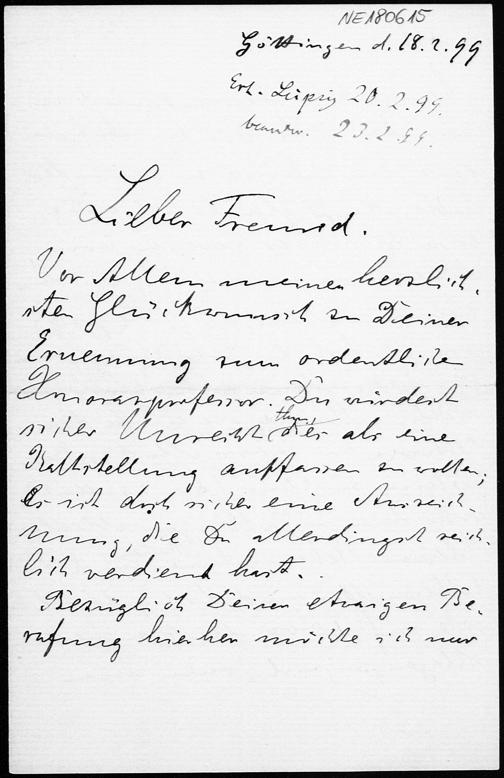 NE180615
Göttingen d. 18.2.99
Erh. Leipzig 20.2.99.
beantw. 23.2.99.
Lieber Freund.
Vor Allem meinen herzlich-
sten Glückwunsch zu Deiner
Ernennung zum ordentlichen
Honorarprofessor. Du würdest
sicher Unrecht thun, dies als eine
Kaltstellung auffassen zu wollen;
es ist doch sicher eine Auszeich-
nung, die Du allerdings reich-
lich verdient hast.
Bezüglich Deiner etwaigen Be-
rufung hierher möchte ich nur